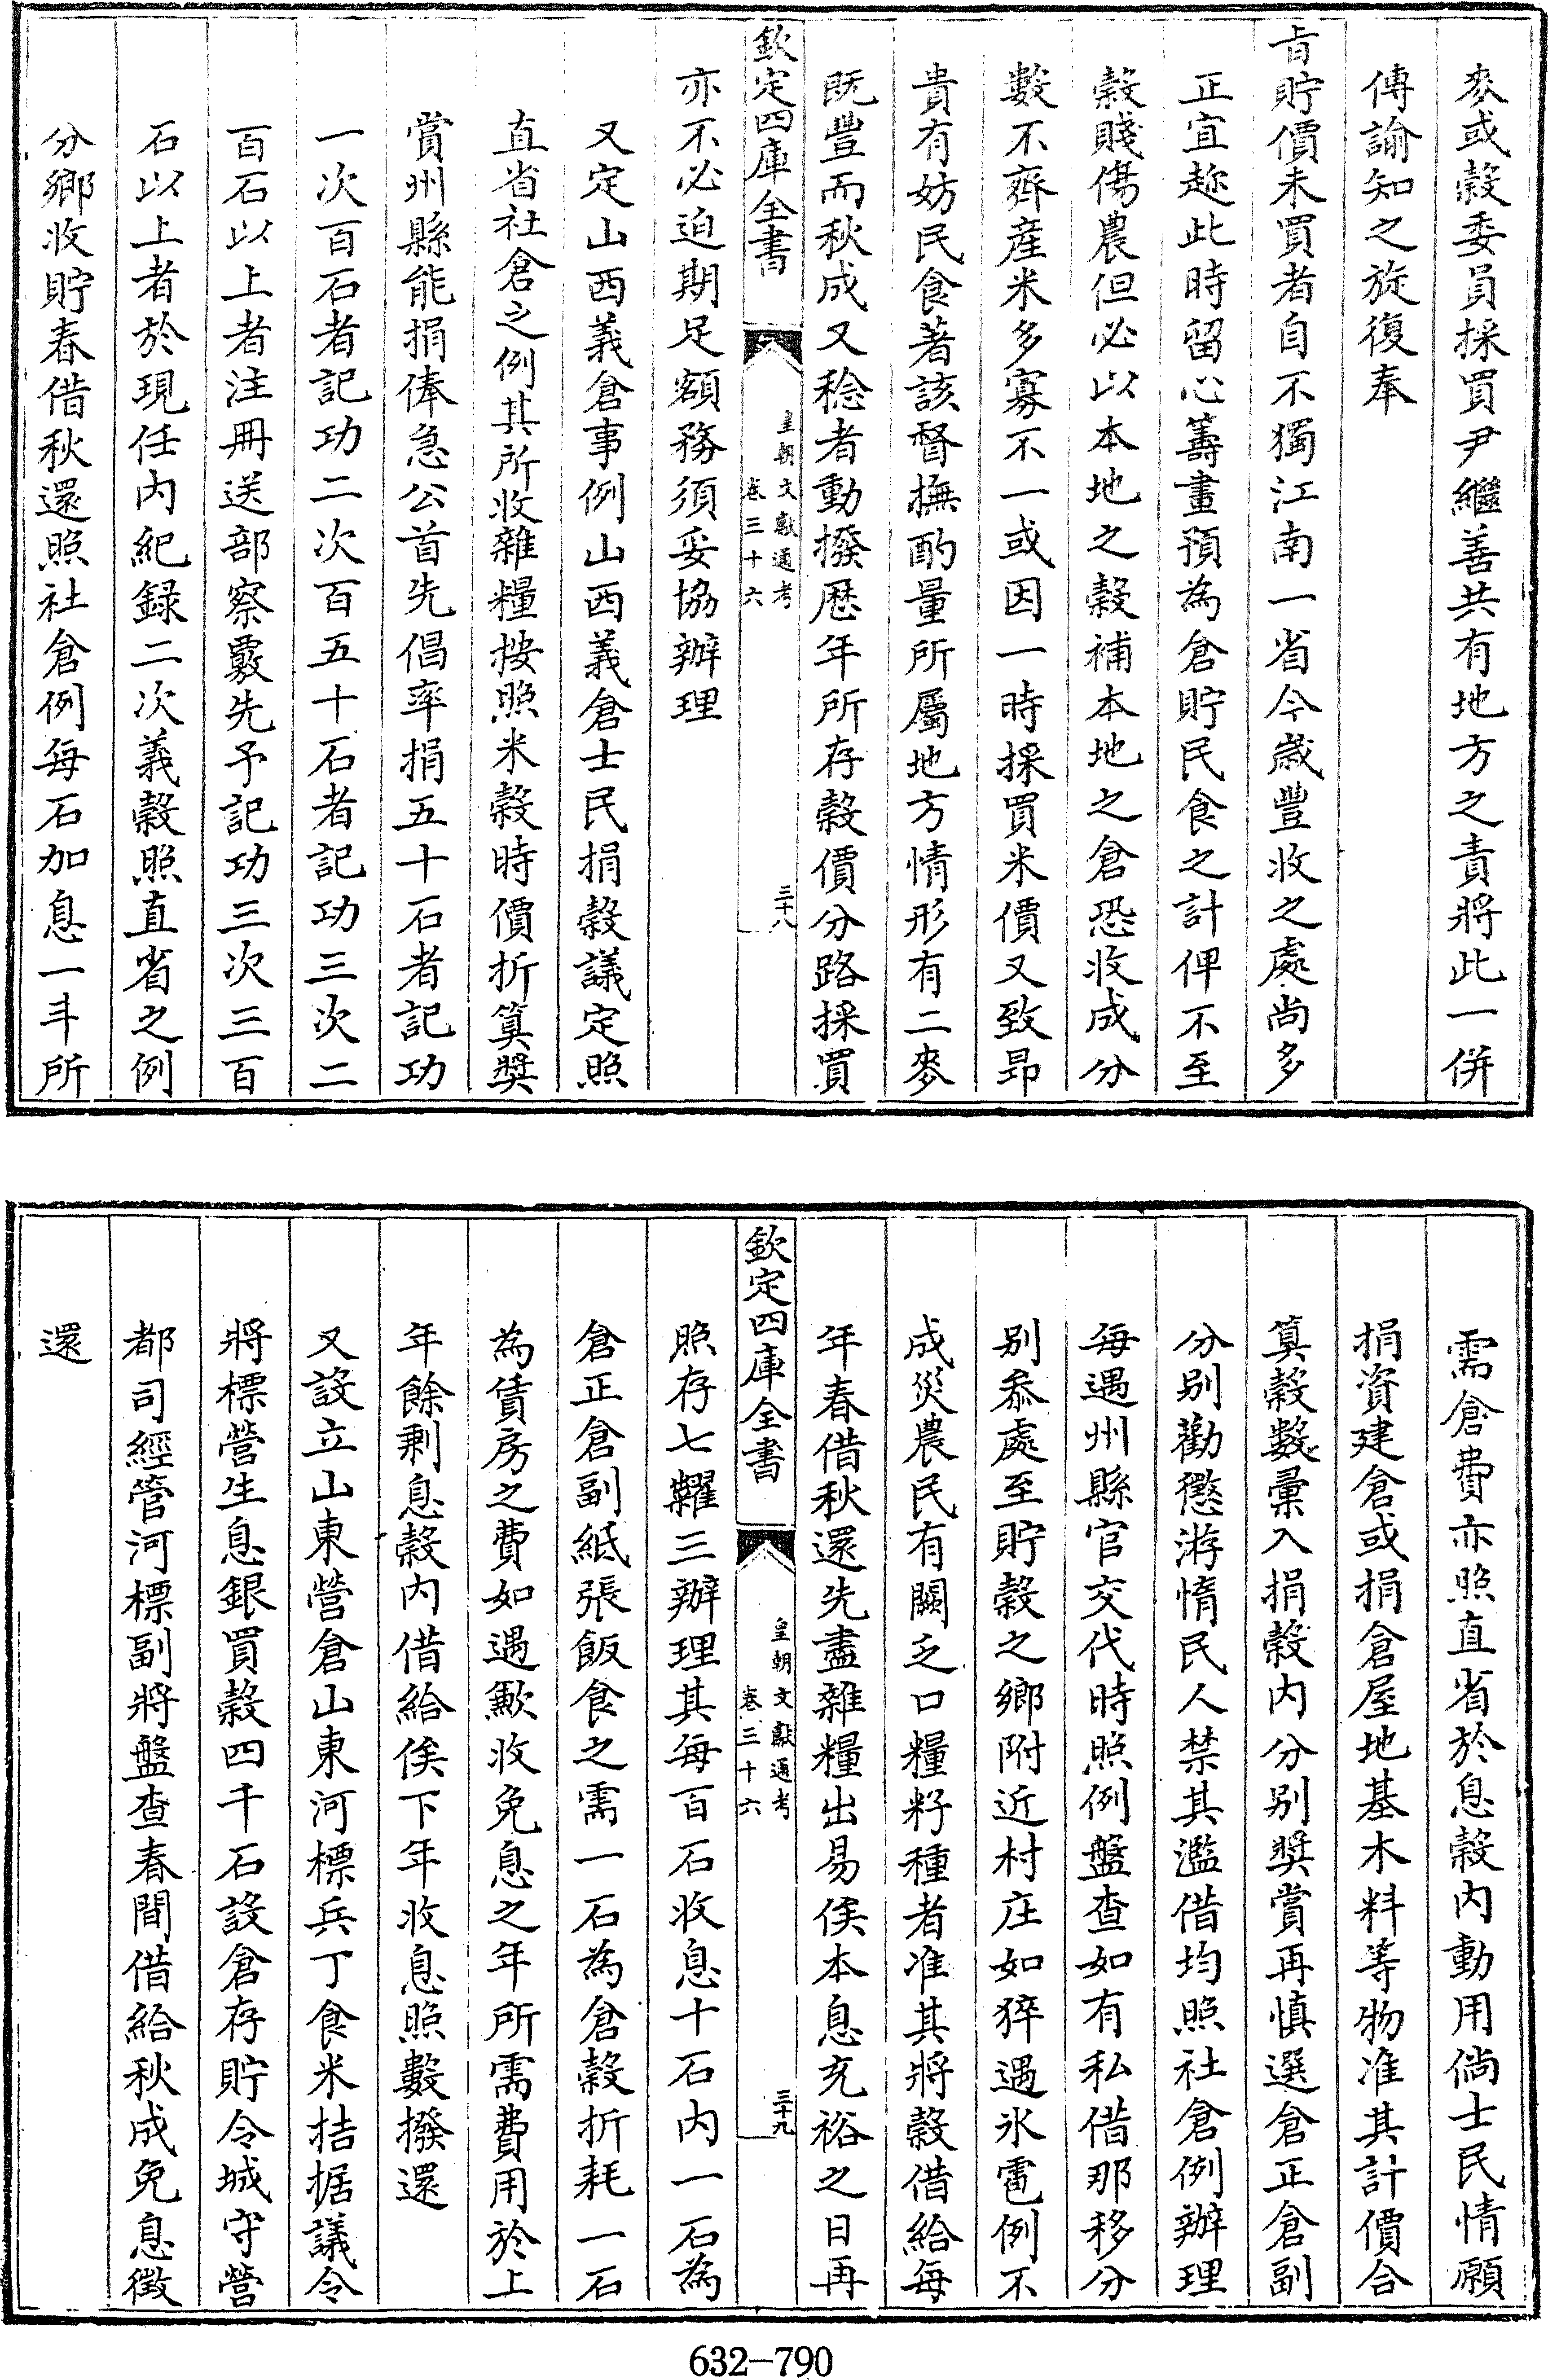 麥或穀委員採買尹繼善共有地方之責將此一併
傳諭知之旋復奉
㫖貯價未買者自不獨江南一省今嵗豐收之處尚多
正宜趂此時留心籌畫預為倉貯民食之計俾不至
穀賤傷農但必以本地之穀補本地之倉恐收成分
數不齊産米多寡不一或因一時採買米價又致昻
貴有妨民食著該督撫酌量所屬地方情形有二麥
既豐而秋成又稔者動撥歴年所存穀價分路採買
欽定四庫全書
皇朝文獻通考
卷三十六
三十八
亦不必迫期足額務須妥協辦理
又定山西義倉事例山西義倉士民捐穀議定照
直省社倉之例其所收雜糧按照米穀時價折算奬
賞州縣能捐俸急公首先倡率捐五十石者記功
一次百石者記功二次百五十石者記功三次二
百石以上者注冊送部察覈先予記功三次三百
石以上者於現任内紀録二次義穀照直省之例
分鄉收貯春借秋還照社倉例每石加息一斗所
需倉費亦照直省於息穀内動用倘士民情願
捐資建倉或捐倉屋地基木料等物准其計價合
算穀數彙入捐穀内分别奬賞再慎選倉正倉副
分别勸懲游惰民人禁其濫借均照社倉例辦理
每遇州縣官交代時照例盤查如有私借那移分
别叅處至貯穀之鄉附近村庄如猝遇氷雹例不
成災農民有闕乏口糧籽種者准其將穀借給每
年春借秋還先盡雜糧出易俟本息充裕之日再
欽定四庫全書
皇朝文獻通考
卷三十六
三十九
照存七糶三辦理其每百石收息十石内一石為
倉正倉副紙張飯食之需一石為倉穀折耗一石
為賃房之費如遇歉收免息之年所需費用於上
年餘剩息穀内借給俟下年收息照數撥還
又設立山東營倉山東河標兵丁食米拮据議令
將標營生息銀買穀四千石設倉存貯令城守營
都司經管河標副將盤查春間借給秋成免息徵
還
632-790